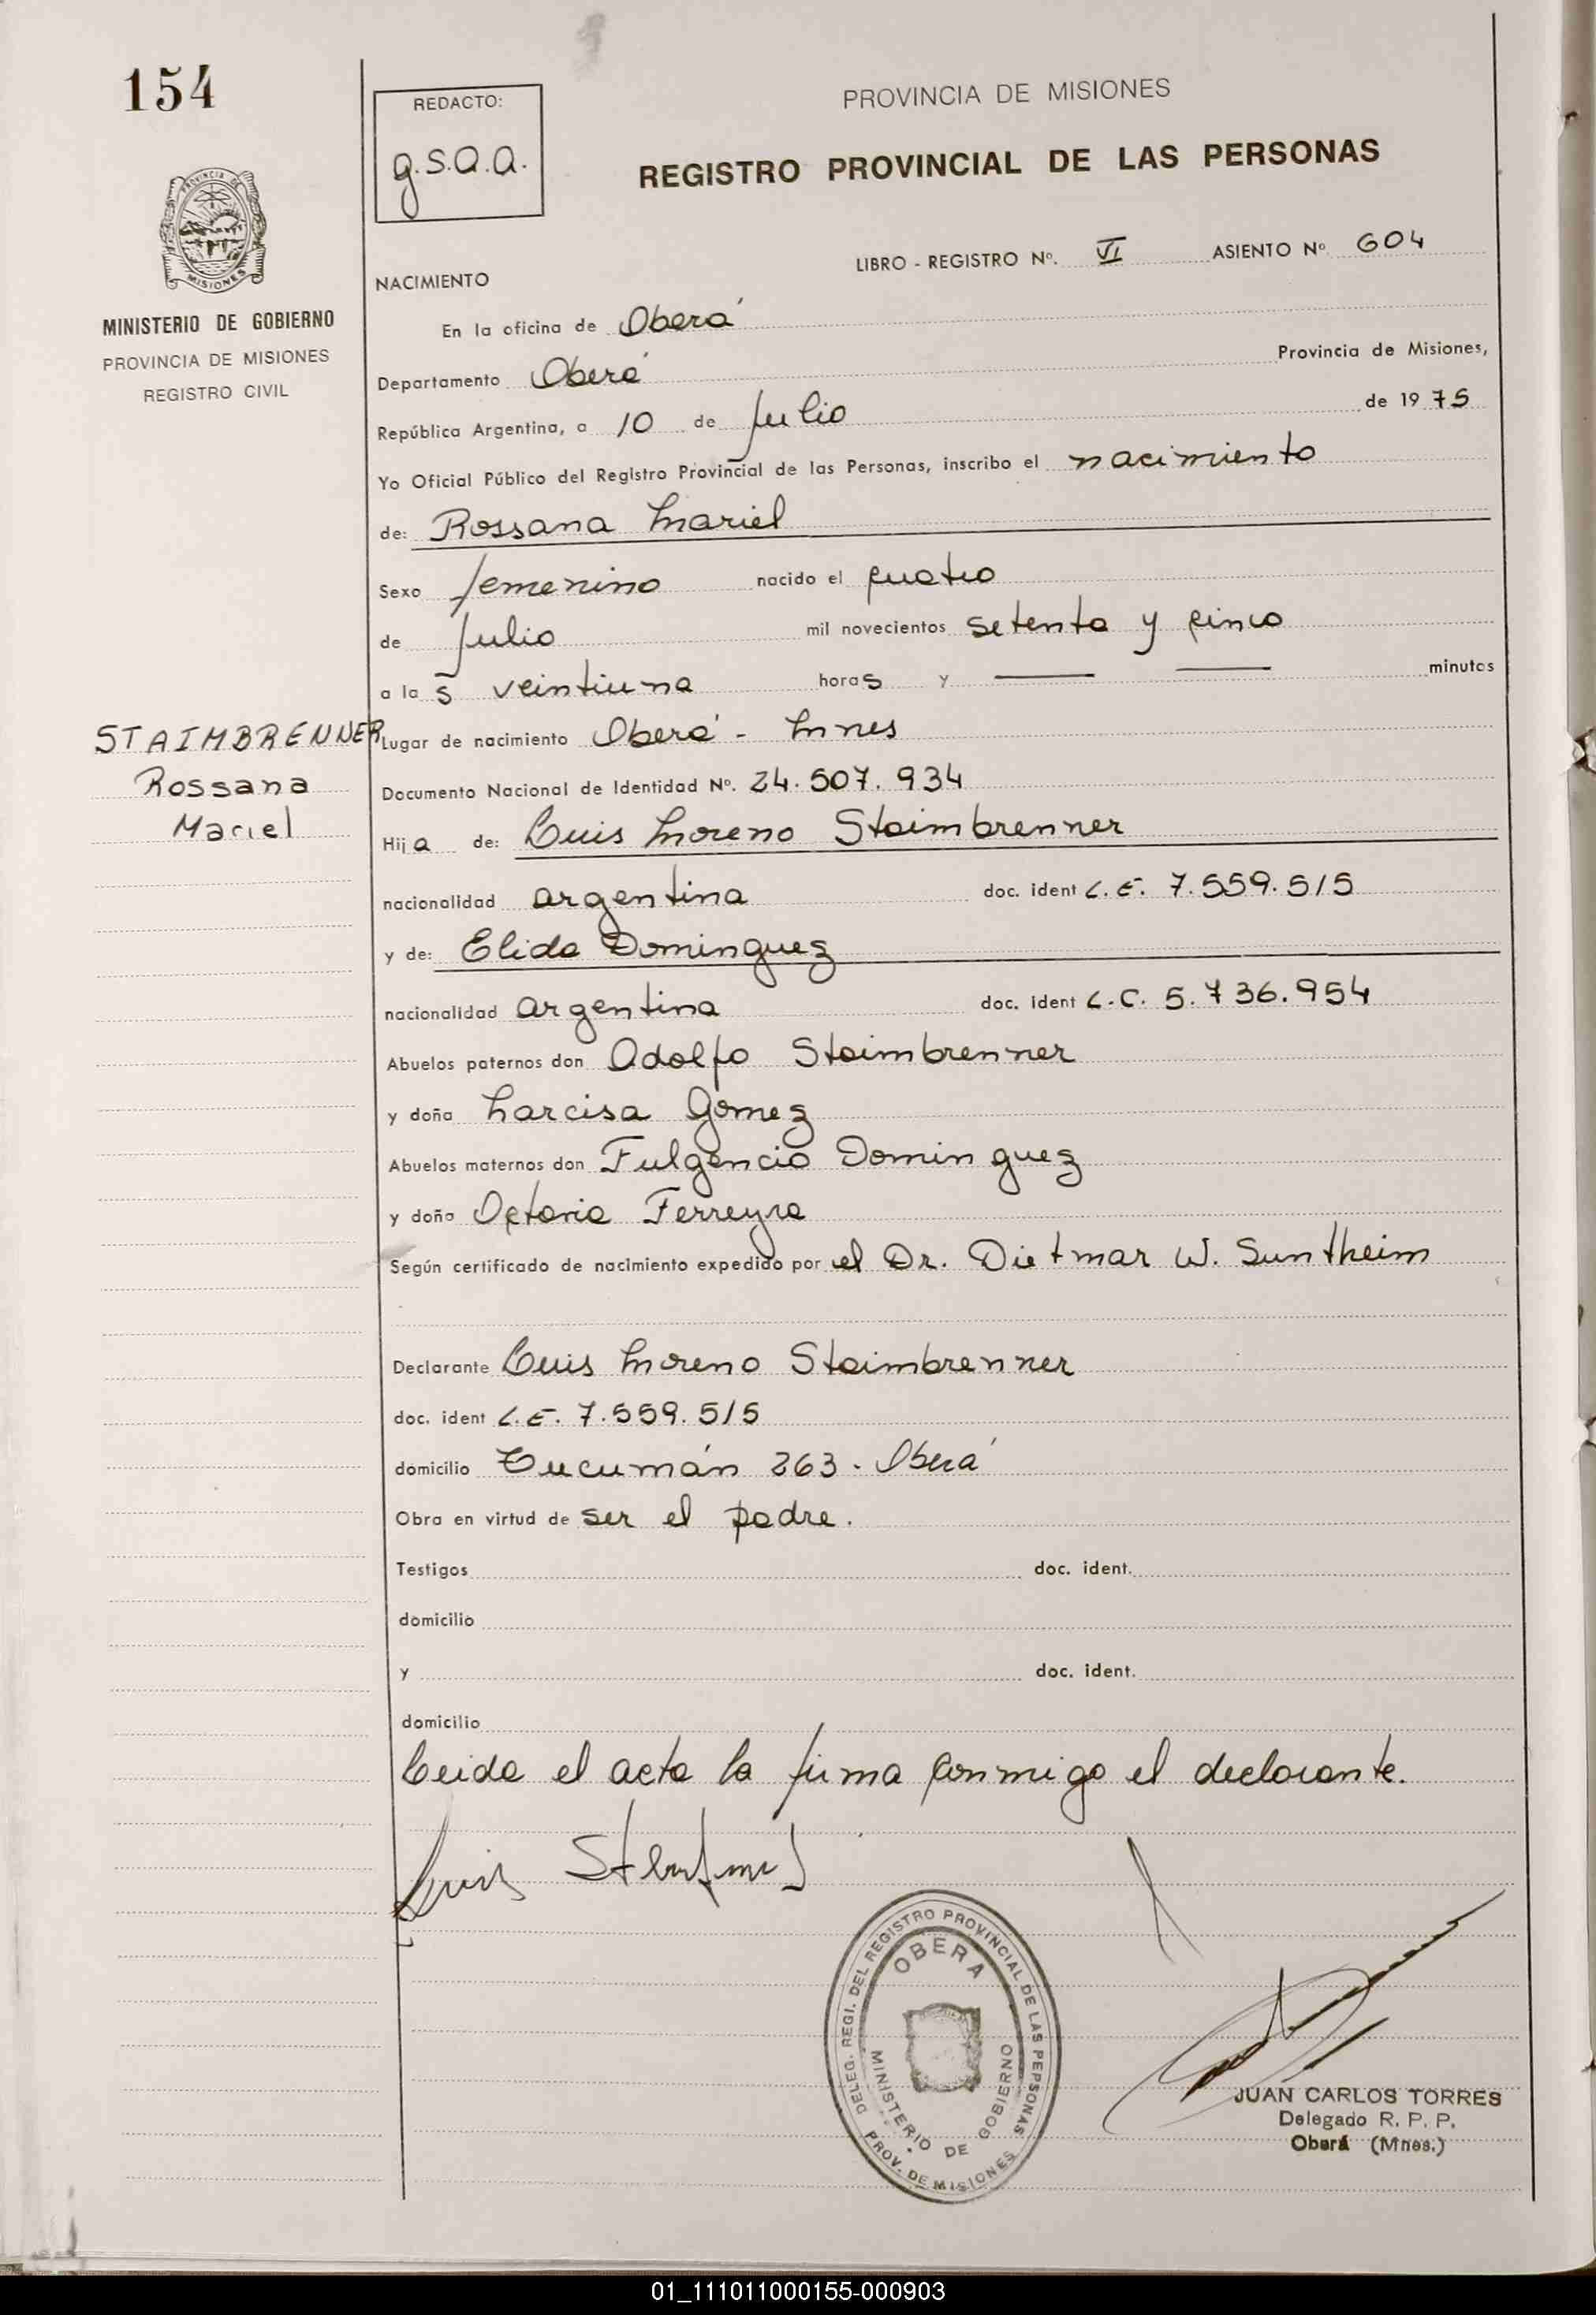 154
REDACTO:
g.s.a.a.
PROVINCIA DE MISIONES
REGISTRO PROVINCIAL DE LAS PERSONAS
PROVINCIA DE
MISIONES
MINISTERIO DE GOBIERNO
PROVINCIA DE MISIONES
REGISTRO CIVIL
LIBRO - REGISTRO Nº. VI ASIENTO Nº 604
NACIMIENTO
En la oficina de Oberá
Departamento Oberá Provincia de Misiones,
República Argentina, a 10 de Julio de 1975
Yo Oficial Público del Registro Provincial de las Personas, inscribo el nacimiento
de: Rossana Mariel
Sexo femenino nacido el cuatro
de Julio mil novecientos setenta y cinco
a la s veintiuna horas y — — minutos
STAIMBRENNER
Rossana
Mariel
Lugar de nacimiento Oberá - Mnes
Documento Nacional de Identidad Nº. 24.507.934
Hija de: Luis Moreno Staimbrenner
nacionalidad argentina doc. ident L.E. 7.559.515
y de: Elida Dominguez
nacionalidad argentina doc. ident L.C. 5.736.954
Abuelos paternos don Adolfo Staimbrenner
y doña Narcisa Gomez
Abuelos maternos don Fulgencio Dominguez
y doña Octavia Ferreyra
Según certificado de nacimiento expedido por el Dr. Dietmar W. Suntheim
Declarante Luis Moreno Staimbrenner
doc. ident L.E. 7.559.515
domicilio Tucumán 263 - Oberá
Obra en virtud de ser el padre.
Testigos doc. ident.
domicilio
y doc. ident.
domicilio
Leida el acta la firma conmigo el declarante.
Luis
DELEG. REGI. DEL REGISTRO PROVINCIAL DE LAS PERSONAS
OBERA
MINISTERIO DE GOBIERNO
PROV. DE MISIONES
JUAN CARLOS TORRES
Delegado R. P. P.
Oberá (Mnes.)
01_111011000155-000903